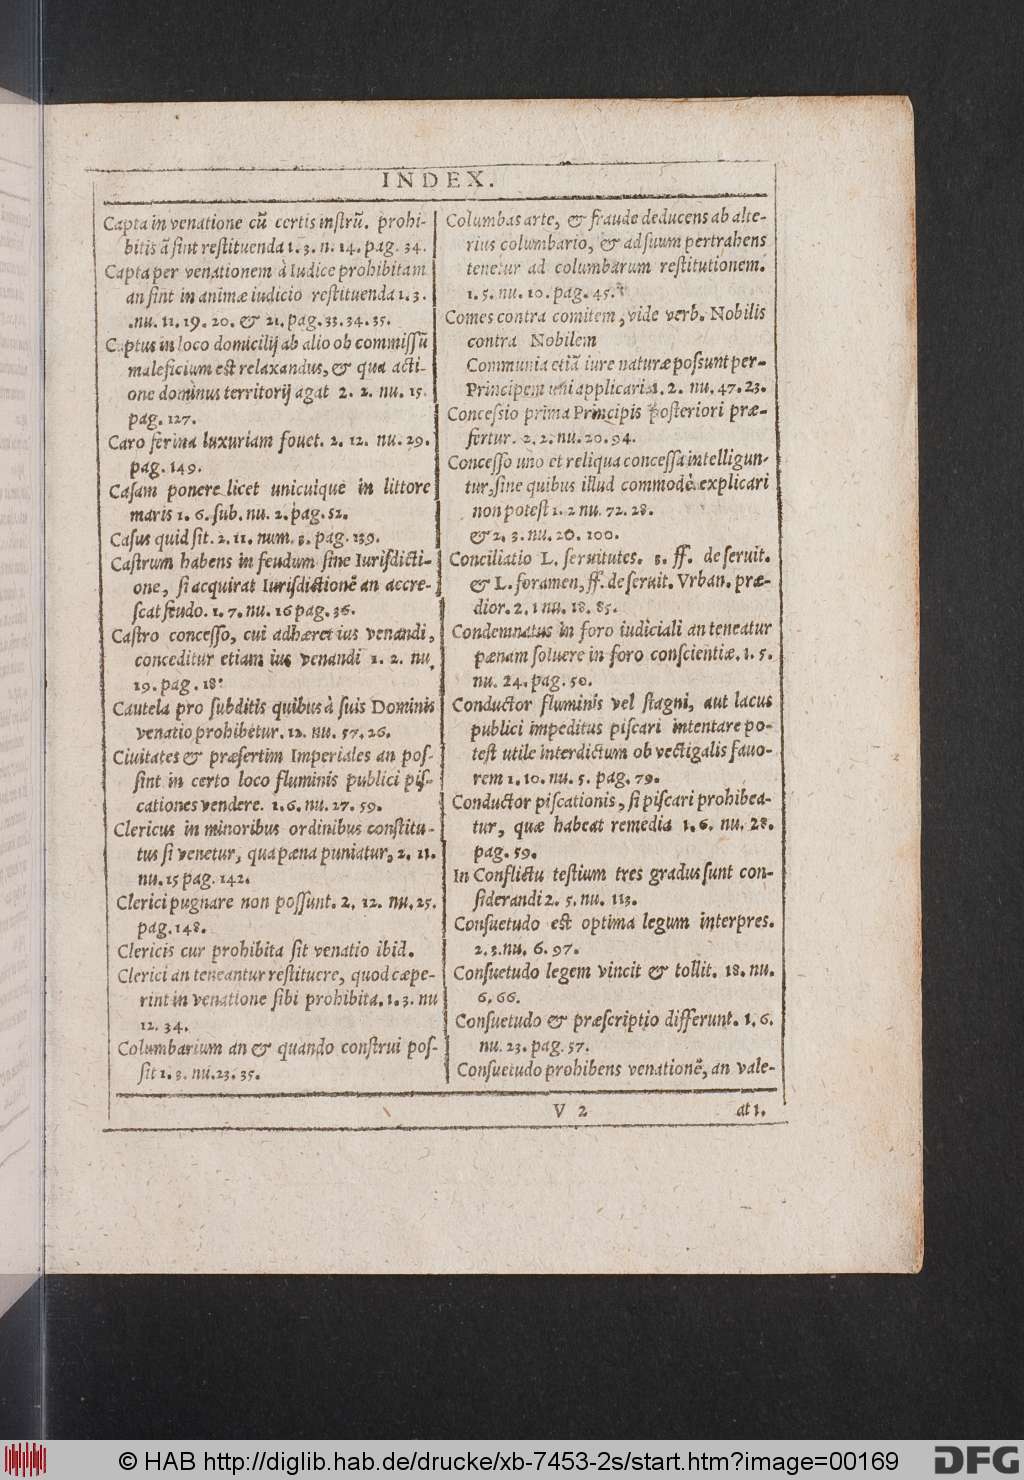 INDEX.
Capta in venatione cū certis inſtrū. prohi-
bitis ā ſint reſtituenda 1. 3. n. 14. pag. 34.
Capta per venationem à Iudice prohibitam
an ſint in animæ iudicio reſtituenda 1. 3.
.nu. 11. 19. 20. & 21. pag. 33. 34. 35.
Captus in loco domicilij ab alio ob commiſſū
maleficium eſt relaxandus, & qua acti-
one dominus territorij agat 2. 2. nu. 15.
pag. 127.
Caro ferina luxuriam fouet. 2. 12. nu. 29.
pag. 149.
Caſam ponere licet unicuique in littore
maris 1. 6. ſub. nu. 2. pag. 52.
Caſus quid ſit. 2. 11. num. 8. pag. 139.
Caſtrum habens in feudum ſine Iurisdicti-
one, ſi acquirat Iurisdictionē an accre-
ſcat feudo. 1. 7. nu. 16 pag. 36.
Caſtro conceſſo, cui adhæret ius venandi,
conceditur etiam ius venandi 1. 2. nu.
19. pag. 18.
Cautela pro ſubditis quibus à ſuis Dominis
venatio prohibetur. 12. nu. 57. 26.
Ciuitates & præſertim Imperiales an poſ-
ſint in certo loco fluminis publici piſ-
cationes vendere. 1. 6. nu. 27. 59.
Clericus in minoribus ordinibus conſtitu-
tus ſi venetur, qua pæna puniatur, 2. 11.
nu. 15 pag. 142.
Clerici pugnare non poſſunt. 2. 12. nu. 25.
pag. 148.
Clericis cur prohibita ſit venatio ibid.
Clerici an teneantur reſtituere, quod cæpe-
rint in venatione ſibi prohibita. 1. 3. nu
12. 34.
Columbarium an & quando conſtrui poſ-
ſit 1. 3. nu. 23. 35.
Columbas arte, & fraude deducens ab alte-
rius columbario, & ad ſuum pertrahens
tenetur ad columbarum reſtitutionem.
1. 5. nu. 10. pag. 45.
Comes contra comitem, vide verb. Nobilis
contra Nobilem
Communia etiā iure naturæ poſſunt per-
Principem uni applicari 1. 2. nu. 47. 23.
Conceſſio prima Principis poſteriori præ-
fertur. 2. 2. nu. 20. 94.
Conceſſo uno et reliqua conceſſa intelligun-
tur, ſine quibus illud commodè explicari
non poteſt 1. 2 nu. 72. 28.
& 2. 3. nu. 20. 100.
Conciliatio L. ſeruitutes. 8. ff. de ſeruit.
& L. foramen, ff. de ſeruit. Vrban. præ-
dior. 2. 1 nu. 18. 85.
Condemnatus in foro iudiciali an teneatur
pænam ſoluere in foro conſcientiæ. 1. 5.
nu. 24. pag. 50.
Conductor fluminis vel ſtagni, aut lacus
publici impeditus piſcari intentare po-
teſt utile interdictum ob vectigalis fauo-
rem 1. 10. nu. 5. pag. 79.
Conductor piſcationis, ſi piſcari prohibea-
tur, quæ habeat remedia 1. 6. nu. 28.
pag. 59.
In Conflictu teſtium tres gradus ſunt con-
ſiderandi 2. 5. nu. 113.
Conſuetudo eſt optima legum interpres.
2. 3. nu. 6. 97.
Conſuetudo legem vincit & tollit. 18. nu.
6. 66.
Conſuetudo & præſcriptio differunt. 1. 6.
nu. 23. pag. 57.
Conſuetudo prohibens venationē, an vale-
V 2
at 1.
© HAB http://diglib.hab.de/drucke/xb-7453-2s/start.htm?image=00169
DFG